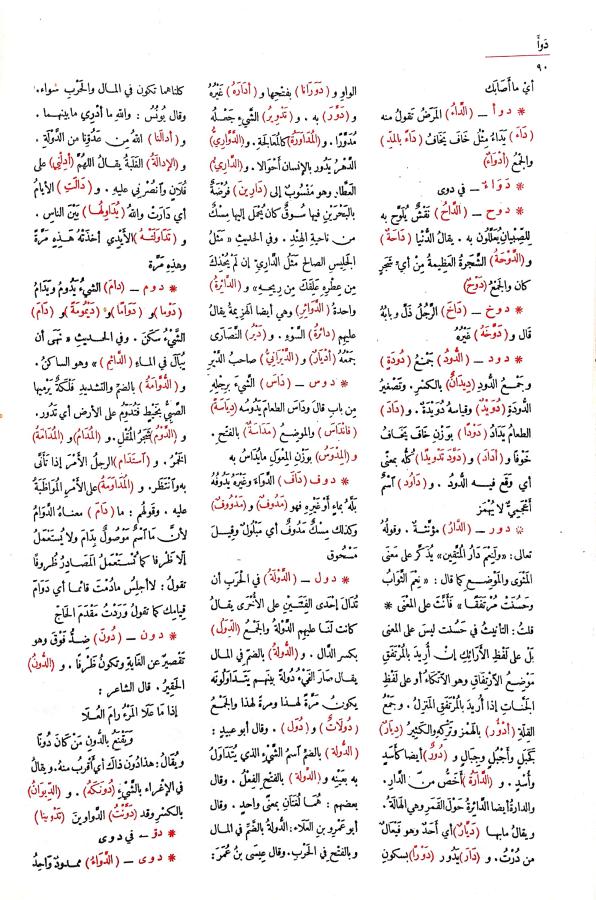 دَوأَ
٩٠
أيْ ما أَصَابَك
* دوأ – (الدَّاءُ) المَرَضُ تَقولُ منه
(دَاءَ) يَدَاءُ مِثْل خَافَ يَخافُ (دَاءً بالمَدِّ)
والجمْعُ (أدْوَاءٌ)
* دَوَاءٌ – في دوى
* دوح – (الدَّاحُ) نَقْشٌ يُلَوَّح به
لِلصِّبيان يُعَلَّلُون به . يقالُ الدُّنيا (دَاحَةٌ)
و(الدَّوْحَةُ) الشَّجَرَةُ العَظيمةُ مِنْ أيِّ شجَرٍ
كان والجمْعُ (دَوْحٌ)
* دوخ – (دَاخَ) الرَّجُلُ ذَلَّ وبابُهُ
قال و(دَوَّخَهُ) غَيْرُهُ
* دود – (الدُّود) جَمْعُ (دُودَةٍ)
وجمْعُ الدُّودِ (دِيدَانٌ) بالكسْرِ. وتَصْغيرُ
الدُّودَةِ (دُوَيْدٌ) وقياسهُ دُوَيْدَةٌ . و(دَادَ)
الطعامُ يَدَادُ (دَوْدًا) بوَزْنِ خَافَ يَخَافُ
خَوْفا و(أدَادَ) و(دَوَّدَ تَدْوِيدًا) كُلُّه بمعنًى
أي وَقَع فيه الدُّود . و(دَاوُد) اسْمٌ
أعْجَمِيٌّ لا يُهْمَز
* دور – (الدَّارُ) مؤنَّثة . وقولُهُ
تعالى: «ولَنِعْمَ دَارُ المُتَّقِين» يُذَكَّر على مَعْنَى
المَثْوَى والمَوْضِعِ كما قال : « نِعْمَ الثَّوَابُ
وحَسُنَتْ مُرْتَفَقًا » فأنَّثَ على المَعْنَى *
قلتُ : التأنيثُ في حَسُنت ليس على المعنى
بلْ على لَفْظِ الأَرائِكِ إنْ أُرِيدَ بالمُرْتَفَقِ
مَوْضِعُ الارْتِفاقِ وهو الاتِّكاءُ أو على لَفْظِ
الجَنَّاتِ إذا أُريدَ بالمُرْتَفَقِ المَنْزِلُ . وجَمْعُ
القِلَّةِ (أَدْؤُرٌ) بالهَمْزِ وتَرْكِهِ والكَثيرُ (دِيارٌ)
كَجَبَلٍ وأَجْبُلٍ وجِبَالٍ و(دُورٌ) أيضا كأَسَدٍ
وأُسْدٍ . و(الدَّارَةُ) أَخَصُّ من الدَّار.
والدارةُ أيضا الدَّائرةُ حَوْلَ القَمرِ وهي الهَالَةُ.
ويقالُ مابها (دَيَّارٌ) أي أَحَدٌ وهو فَيْعَالٌ
من دُرْتُ . و(دَارَ) يَدُور (دَوْرًا) بسكون
الواوِ و(دَوَرَانًا) بفتحِها و(أدَارَهُ) غَيْرُهُ
و(دَوَّرَ) به . و(تَدْوِيرُ) الشَّيءِ جَعْلُه
مُدَوَّرًا . و(المُدَاوَرَةُ) كالمُعَالجة. و(الدَّوَّارِيُّ)
الدَّهْرُ يَدُور بالإنسانِ أحْوالا. و(الدَّارِيُّ)
العَطَّار وهو منسُوبٌ إلى (دَارِينَ) فُرْضَةٌ
بالبَحْرَيْنِ فيها سُوقٌ كان يُحْمَل إليها مِسْكٌ
من ناحيةِ الهِنْد . وفي الحديث « مَثَلُ
الجليسِ الصالح مَثَلُ الدَّارِيِّ إنْ لم يُحْذِكَ
من عِطْرِه عَلِقَكَ من رِيحِه» و(الدَّائرةُ)
واحدةُ (الدَّوَائرِ) وهي أيضا الهَزِيمةُ يقالُ
عليهم (دَائرةُ) السَّوْءِ . و(دَيْرُ) النَّصارى
جَمْعُهُ (أدْيَارٌ) و(الدَّيْرانِيُّ) صاحبُ الدَّيْرِ
* دوس – (دَاسَ) الشَّيءَ بِرِجْلِهِ
من باب قالَ ودَاسَ الطعامَ يَدُوسُه (دِيَاسَةً)
(فانْدَاسَ) والموضعُ (مَدَاسَةٌ) بالفتح .
و(المِدْوَسُ) بوَزْنِ المِعْوَلِ مايُدَاسُ به
* دوف (دَافَ) الدَّواءَ وغيرَهُ يَدُوفُهُ
بَلَّهُ بماءٍ أوْ غيرِهِ فهو (مَدُوفٌ) و(مَدْوُوفٌ)
وكذلك مِسْكٌ مَدُوفٌ أي مَبْلُولٌ وقيل
مَسْحُوق
* دول – (الدَّوْلَةُ) في الحَرْبِ أن
تُدَالَ إحْدى الفِئَتَيْنِ على الأُخْرى يقالُ
كانت لنا عليهم الدَّوْلةُ والجمْعُ (الدِّوَلُ)
بكسر الدَّال . و(الدُّولةُ) بالضَّمِّ في المال
يقالُ صارَ الفَيْءُ دُولَةً بينهم يَتَدَاوَلُونَهُ
يكونُ مرَّةً لهذا ومرةً لهذا والجَمْعُ
(دُولَاتٌ) و(دُوَلٌ) . وقال أبو عبيد :
(الدُّولةُ) بالضَّمِّ اسمُ الشَّيءِ الذي يُتَدَاوَلُ
به بعَيْنِهِ و(الدَّولةُ) بالفتح الفِعْلُ . وقال
بعضهم : هُمَا لُغَتَانِ بمعنًى واحِدٍ . وقال
أبو عَمْرو بن العَلاء: الدُّولةُ بالضَّمِّ في المال
وبالفتح في الحَرْب. وقال عيسى بنُ عُمَرَ:
كلتاهما تكون في المـال والحَرْبِ سواء.
وقال يُونُسُ : واللهِ ما أدْرِي مابينهما .
و(أدالَنا) اللهُ مِن عَدُوِّنا من الدَّوْلة .
و(الإدالةُ) الغَلَبةُ يقالُ اللهُمَّ (أدِلْنِي) على
فُلانٍ وانْصُرْني عليه . و(دَالَتِ) الأيامُ
أي دَارَت واللهُ (يُدَاوِلُها) بَيْنَ الناسِ .
و(تَدَاوَلَتْهُ) الأَيْدِي أخَذَتْهُ هـذه مرَّةً
وهذِهِ مَرَّة
* دوم – (دامَ) الشيءُ يدُومُ ويَدَامُ
(دَوْما) و(دَوَامًا) و(دَيْمُومَةً) و(دَامَ)
الشَّيْءُ سَكَنَ . وفي الحديث « نَهَى أن
يُبَالَ في الماءِ (الدَّائِمِ) » وهو الساكنُ .
و(الدُّوَّامَةُ) بالضمِّ والتشديدِ فَلْكَةٌ يَرْمِيها
الصَّبِيُّ بخَيْطٍ فتُدَوِّمُ على الأرضِ أي تَدُور.
و(الدَّوْمُ) شَجَرُ المُقْلِ. و(المُدَامُ) و(المُدَامَةُ)
الخَمْرُ . و(اسْتَدَامَ) الرجلُ الأمْرَ إذا تَأَنَّى
به وانْتَظَر. و(المُدَاوَمَةُ) على الأَمْرِ المُوَاظَبَةُ
عليه . وقولُهم : ما (دَامَ) معناهُ الدَّوامُ
لأنَّ ما اسْمٌ مَوْصُولٌ بِدَامَ ولا يُسْتَعْمَلُ
إلَّا ظَرْفا كما تُسْتَعملُ المَصَادِرُ ظُرُوفًا
تَقولُ : لا أجلِسُ مادُمْتَ قائما أي دَوَامَ
قِيامِك كما تقولُ وَرَدْتُ مَقْدَمَ الحَاجِّ
* دون – (دُونَ) ضِدُّ فَوْقَ وهو
تَقْصيرٌ عن الغَايةِ وتكونُ ظَرْفا . و(الدُّونُ)
الحَقيرُ . قال الشاعر :
إذا ما عَلَا المَرْءُ رامَ العُلَا
ويَقْنَعُ بالدُّونِ مَنْ كانَ دُونًا
ويُقالُ : هذا دُونَ ذاك أي أقْرَبُ منه. ويقالُ
في الإغراءِ بالشَّيءِ (دُونَكَهُ) . و(الدِّيوَانُ)
بالكسْرِ وقد (دَوَّنْتُ) الدَّواوينَ (تَدْوِينًا)
* دوّ – في دوى
* دوى – (الدَّوَاءُ) ممدودٌ واحِدُ